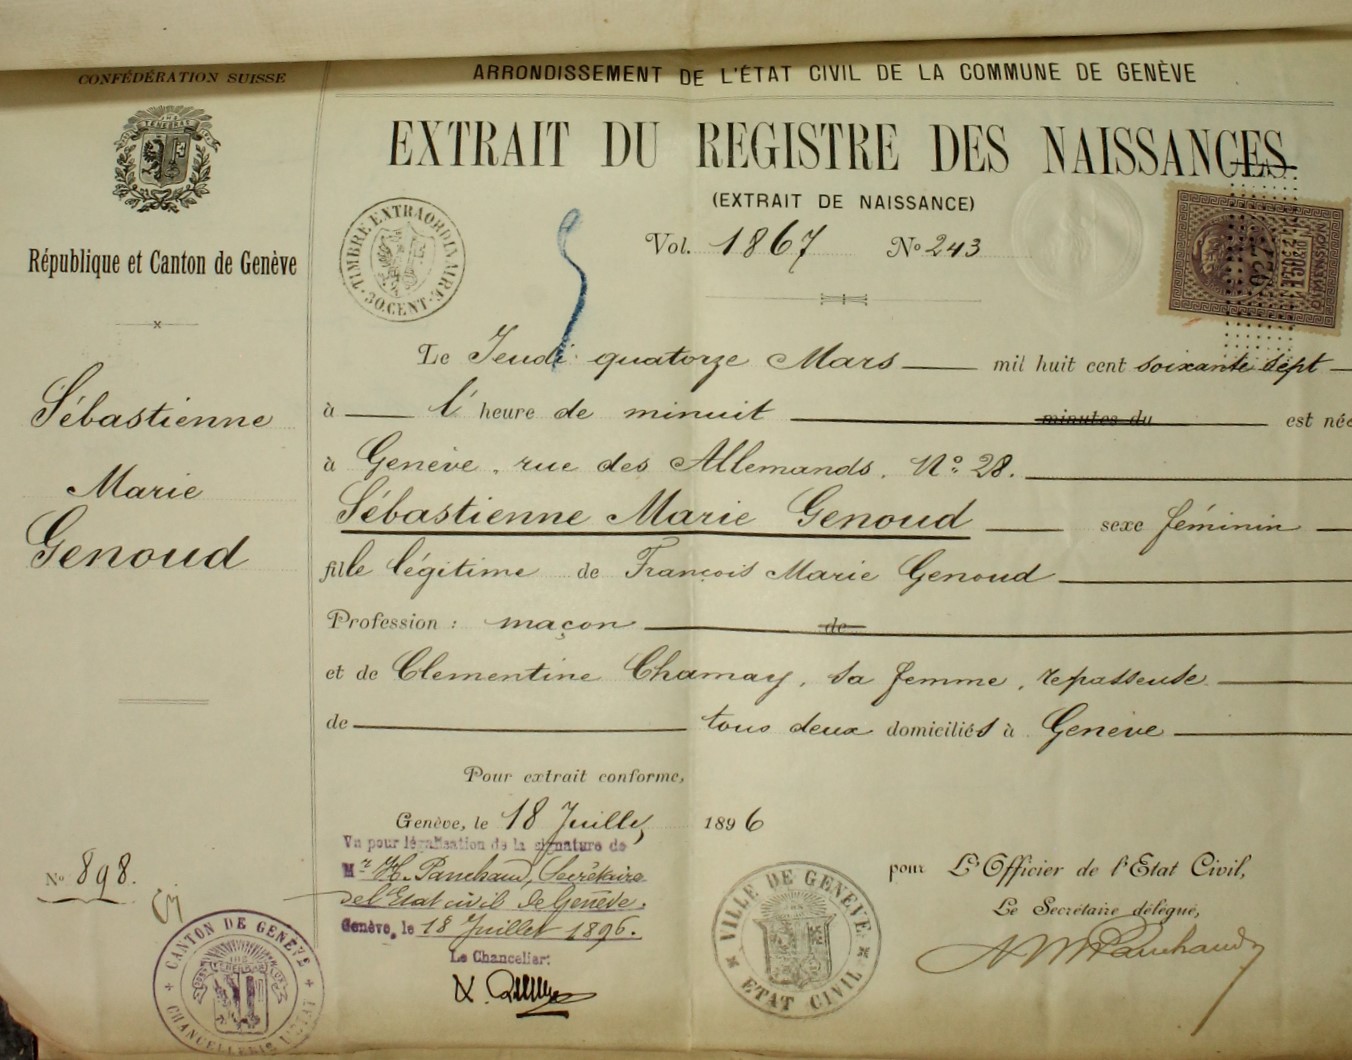 CONFÉDÉRATION SUISSE
République et Canton de Genève
Sébastienne
Marie
Genoud
No 898.
CANTON DE GENÈVE
CHANCELLERIE D'ETAT
ARRONDISSEMENT DE L'ÉTAT CIVIL DE LA COMMUNE DE GENÈVE
EXTRAIT DU REGISTRE DES NAISSANCES
(EXTRAIT DE NAISSANCE)
TIMBRE EXTRAORDINAIRE
30 CENT.
Vol. 1867 No 243
DIMENSION
Le Jeudi quatorze Mars mil huit cent soixante sept
à l'heure de minuit minutes du est née
à Genève, rue des Allemands, No 28.
Sébastienne Marie Genoud sexe féminin
fille légitime de François Marie Genoud
Profession : maçon de
et de Clementine Chamay, sa femme, repasseuse
de tous deux domiciliés à Genève
Pour extrait conforme,
Genève, le 18 Juillet 1896
Vu pour légalisation de la signature de
Mr H. Panchaud, Secrétaire
de l'Etat civil de Genève.
Genève, le 18 Juillet 1896.
Le Chancelier:
VILLE DE GENÈVE
ETAT CIVIL
pour L'Officier de l'Etat Civil,
Le Secrétaire délégué,
Panchaud